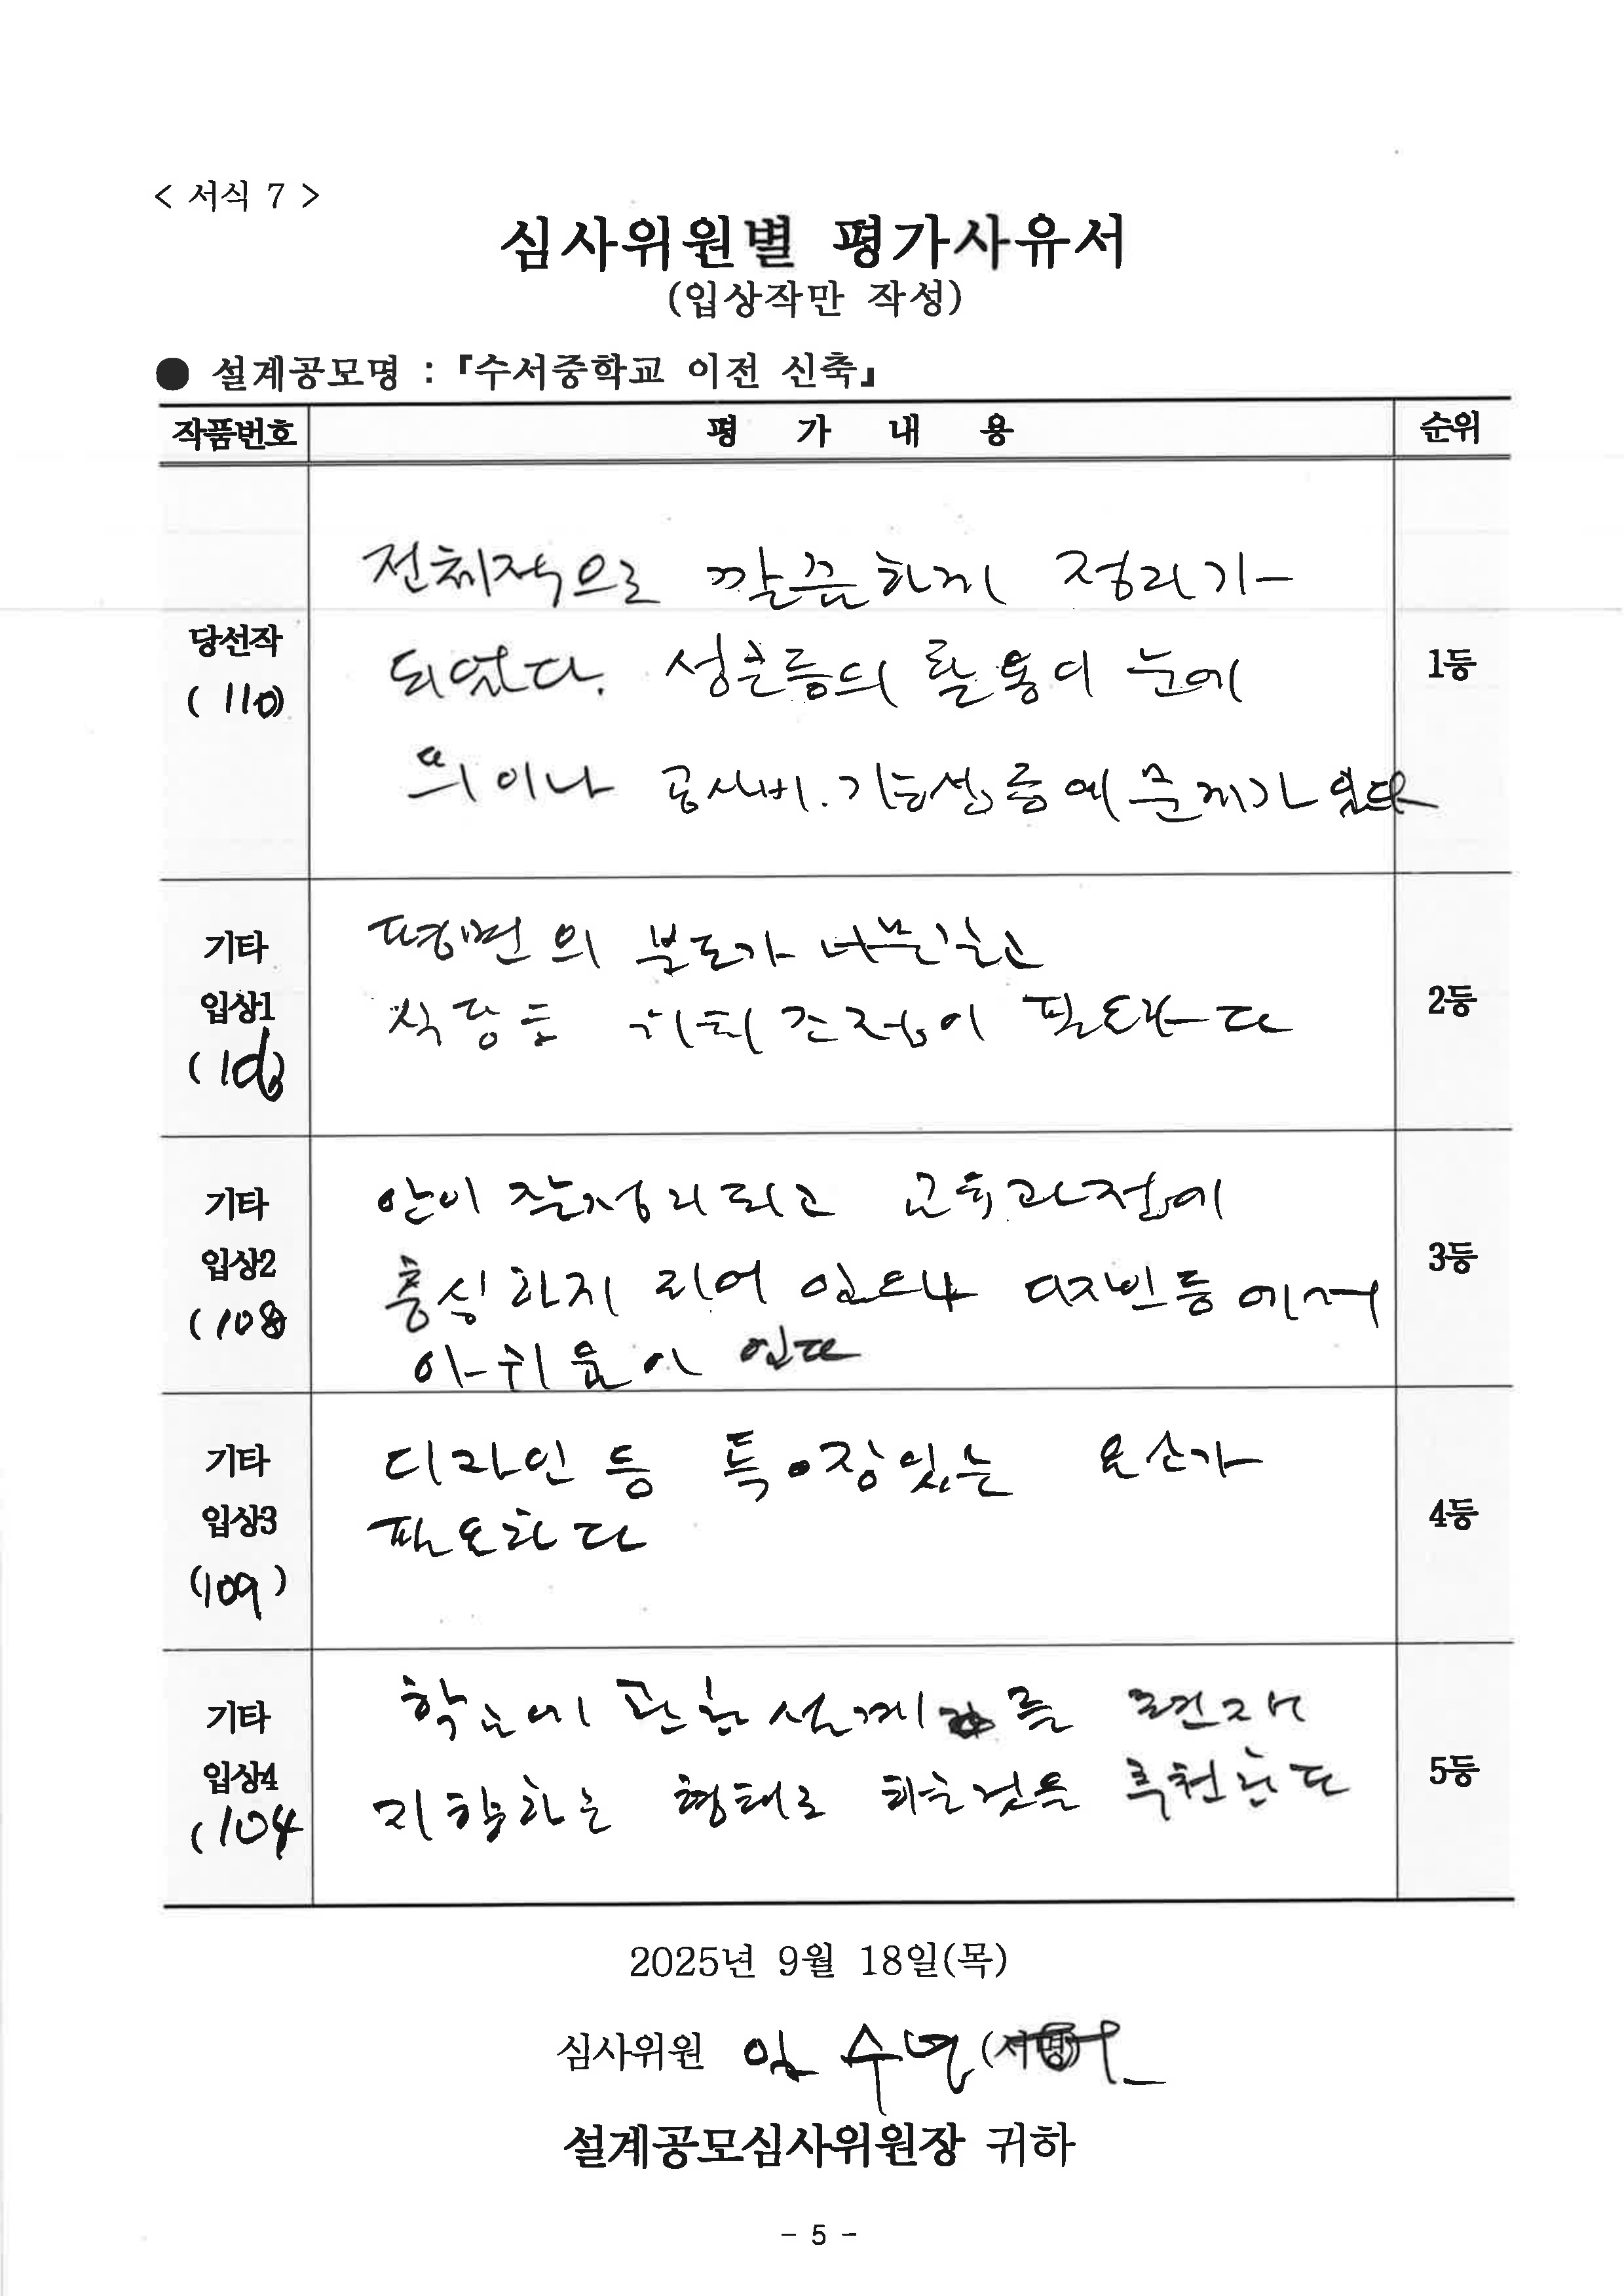 < 서식 7 >
심사위원별 평가사유서
(입상작만 작성)
● 설계공모명 : 『수서중학교 이전 신축』
작품번호 평 가 내 용 순위
전체적으로 깔끔하게 정리가
되었다. 성큰등의 활용이 눈에
띄이나 공사비.기능성등에 문제가 있다
당선작
( 110)
1등
평면의 분도가
식당등 위치 조정이 필요하다
기타
입상1
2등
안이 잘정리되고 교육과정에
충실하지 되어 있으나 디자인등에서
아쉬움이 있다
기타
입상2
(108
3등
디자인 등 특장있는 요소가
필요하다
기타
입상3
(109)
4등
학교에 관한 설계를
지향하는 형태로 추천한다
기타
입상4
(104
5등
2025년 9월 18일(목)
심사위원 임 수 (서명)
설계공모심사위원장 귀하
- 5 -